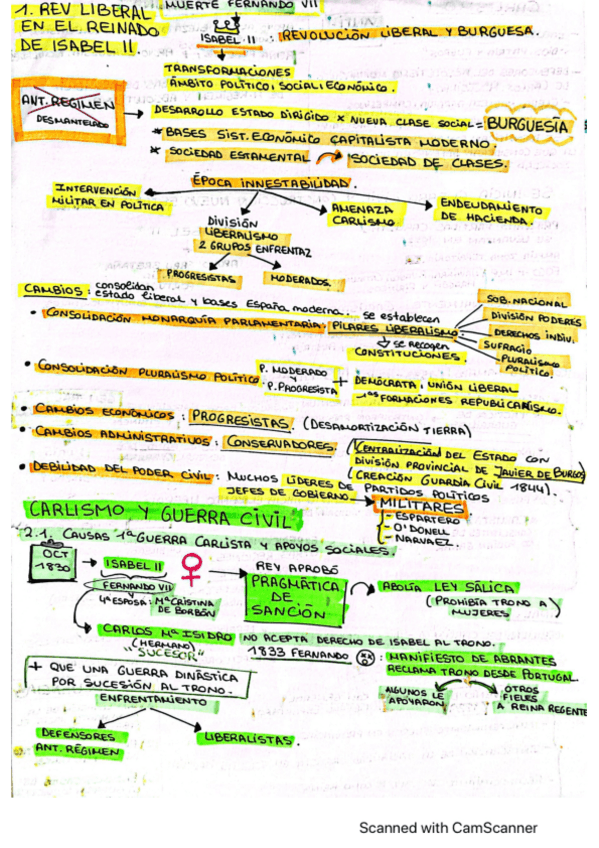 1. REV LIBERAL
EN EL REINADO
DE ISABEL II
MUERTE FERNANDO VII
ISABEL II : REVOLUCIÓN LIBERAL Y BURGUESA.
TRANSFORMACIONES
ÁMBITO POLÍTICO, SOCIAL, ECONÓMICO.
ANT. REGIMEN
DESMANTELADO
DESARROLLO ESTADO DIRIGIDO X NUEVA CLASE SOCIAL = BURGUESÍA
* BASES SIST. ECONÓMICO CAPITALISTA MODERNO.
* SOCIEDAD ESTAMENTAL → SOCIEDAD DE CLASES.
ÉPOCA INNESTABILIDAD.
INTERVENCIÓN
MILITAR EN POLÍTICA
DIVISIÓN
LIBERALISMO
2 GRUPOS ENFRENTAZ
AMENAZA
CARLISMO
ENDEUDAMIENTO
DE HACIENDA.
PROGRESISTAS
MODERADOS.
CAMBIOS : consolidan
estado liberal y bases España moderna... se establecen
• CONSOLIDACIÓN MONARQUÍA PARLAMENTARIA: PILARES LIBERALISMO:
SOB. NACIONAL
DIVISIÓN PODERES
DERECHOS INDIV.
SUFRAGIO
PLURALISMO
POLÍTICO.
↓ se recogen
CONSTITUCIONES.
• CONSOLIDACIÓN PLURALISMO POLÍTICO: P. MODERADO
Y
P. PROGRESISTA
+ DEMÓCRATA, UNIÓN LIBERAL
1as FORMACIONES REPUBLICANISMO.
• CAMBIOS ECONÓMICOS : PROGRESISTAS. (DESAMORTIZACIÓN TIERRA)
• CAMBIOS ADMINISTRATIVOS : CONSERVADORES. (CENTRALIZACIÓN DEL ESTADO CON
DIVISIÓN PROVINCIAL DE JAVIER DE BURGOS)
(CREACIÓN GUARDIA CIVIL 1844).
• DEBILIDAD DEL PODER CIVIL : MUCHOS LÍDERES DE PARTIDOS POLÍTICOS
JEFES DE GOBIERNO → MILITARES
- ESPARTERO
- O'DONELL
- NARVAEZ.
CARLISMO Y GUERRA CIVIL
2.1. CAUSAS 1ª GUERRA CARLISTA Y APOYOS SOCIALES.
OCT
1830
ISABEL II
FERNANDO VII
4ª ESPOSA: Mª CRISTINA
DE BORBÓN
REY APROBÓ
PRAGMÁTICA
DE
SANCIÓN
ABOLÍA LEY SÁLICA
(PROHIBÍA TRONO A
MUJERES
CARLOS Mª ISIDRO NO ACEPTA DERECHO DE ISABEL AL TRONO.
(HERMANO)
"SUCESOR"
1833 FERNANDO
: MANIFIESTO DE ABRANTES
RECLAMA TRONO DESDE PORTUGAL
ALGUNOS LE
APOYARON
OTROS
FIELES
A REINA REGENTE
+ QUE UNA GUERRA DINÁSTICA
POR SUCESIÓN AL TRONO.
ENFRENTAMIENTO
DEFENSORES
ANT. RÉGIMEN
LIBERALISTAS.
Scanned with CamScanner